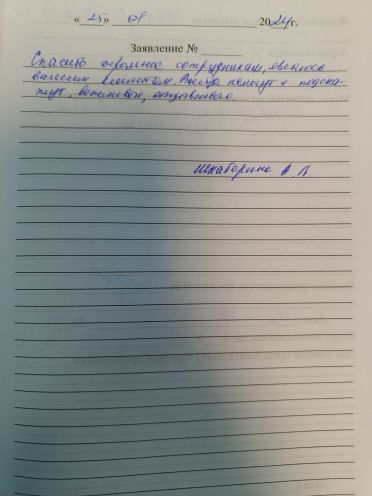 « 25 » 01 2024г.
Заявление № ______
Спасибо огромное сотрудникам,
вашим клиентам. Всегда помогут и подска-
жут, вежливые, отзывчивые.
Шкаберина А Л.